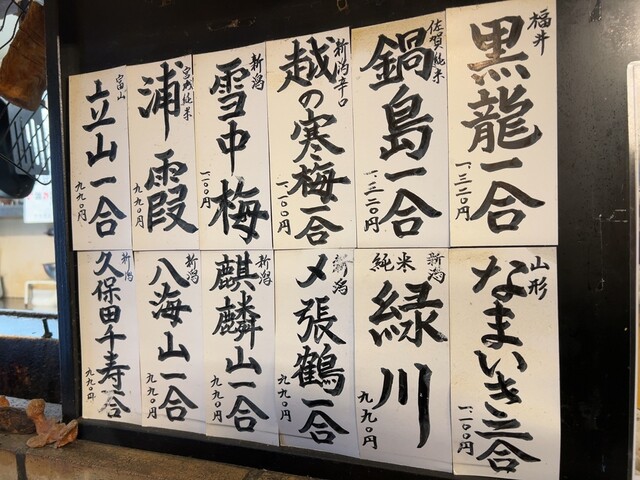 福井
黒龍一合
一、三二〇円
佐賀純米
鍋島一合
一、三二〇円
新潟辛口
越の寒梅一合
一、一〇〇円
新潟
雪中梅
一、一〇〇円
宮城純米
浦霞
九九〇円
富山
立山一合
九九〇円
山形
なまいき三合
一、一〇〇円
新潟
純米
緑川
九九〇円
新潟
〆張鶴一合
九九〇円
新潟
麒麟山一合
九九〇円
新潟
八海山一合
九九〇円
新潟
久保田千寿一合
九九〇円